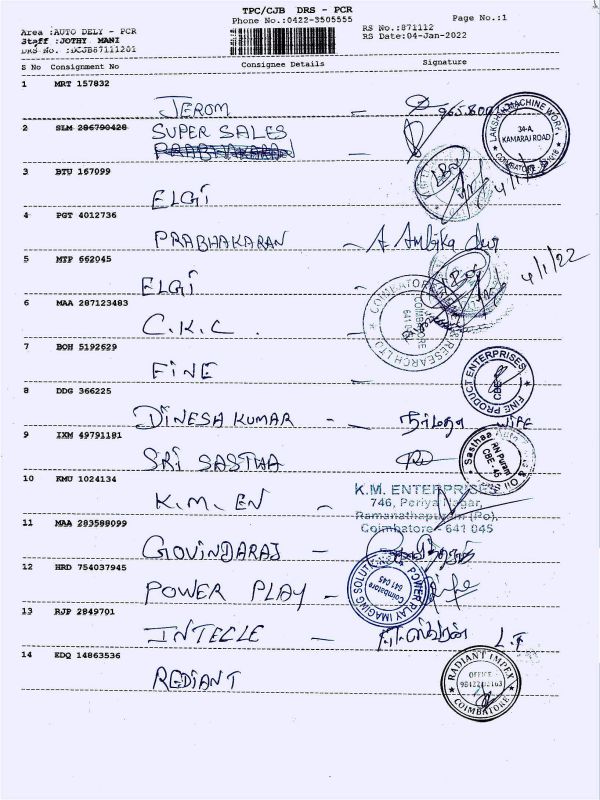 TPC/CJB DRS - PCR
Phone No.:0422-3505555
Page No.:1
Area :AUTO DELY - PCR
RS No.:871112
Staff :JOTHY MANI
RS Date:04-Jan-2022
DRS No. :DCJB87111201
S No Consignment No Consignee Details Signature
1 MRT 157832
JEROM -
LAKSHMI MACHINE WORKS
34-A, KAMARAJ ROAD
COIMBATORE
2 SLM 286790428
SUPER SALES
PRABHAKARAN -
3 BTU 167099
ELGI
4/1/22
4 PGT 4012736
PRABHAKARAN - A. Ambika
5 MTP 662045
ELGI -
4/1/22
6 MAA 287123483
C.K.C. -
COIMBATORE
RESEARCH LTD
COIMBATORE
641
7 BOH 5192629
FINE -
FINE PRODUCT ENTERPRISES
CBE
8 DDG 366225
DINESH KUMAR - நிர்மலா WIFE
9 IXM 49791181
SRI SASTHA
Sasthaa Auto & Oil Stores
RN Puram
CBE - 45
10 KMU 1024134
K.M. EN -
K.M. ENTERPRISES
746, Periya Nagar,
Ramanathapuram (Po),
Coimbatore - 641 045
11 MAA 283588099
GOVINDARAJ -
12 HRD 754037945
POWER PLAY - Wife
POWER PLAY IMAGING SOLUTIONS
Coimbatore
641 045
13 RJP 2849701
INTECLE -
14 EDQ 14863536
REDIANT
RADIANT IMPEX
OFFICE
COIMBATORE